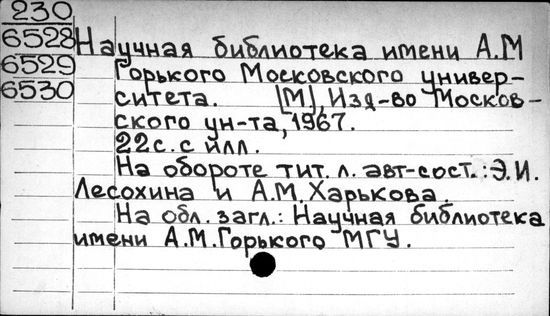 230
6528
6529
6530
Научная библиотека имени А.М
Горького Московского универ-
ситета. [М], Изд-во Москов-
ского ун-та, 1967.
22с. с илл.
На обороте тит. л. авт-сост.: Э.И.
Лесохина и А.М. Харькова.
На обл. загл.: Научная библиотека
имени А.М. Горького МГУ.